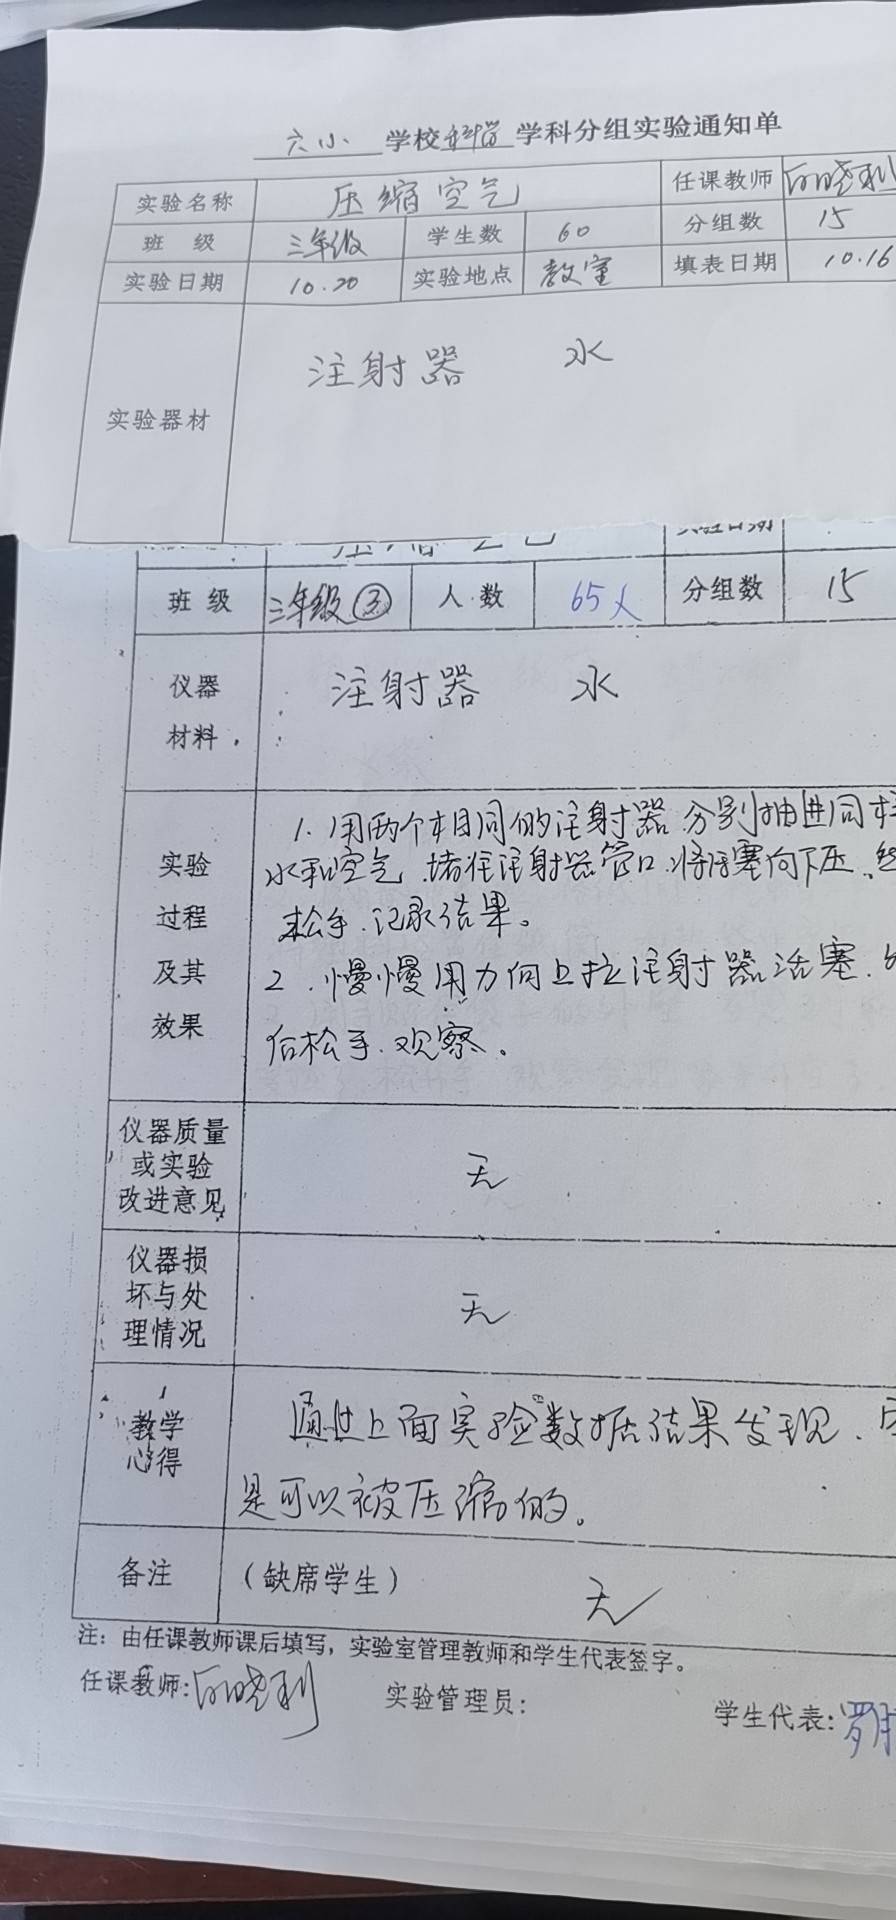 六小 学校科学学科分组实验通知单
实验名称 压缩空气 任课教师 向晓利
班 级 三年级 学生数 60 分组数 15
实验日期 10.20 实验地点 教室 填表日期 10.16
实验器材 注射器 水
班 级 三年级③ 人数 65人 分组数 15
仪器材料 注射器 水
实验过程及其效果
1. 用两个相同的注射器分别抽进同样
水和空气.堵住注射器管口.将活塞向下压、
松手.记录结果。
2. 慢慢用力向上拉注射器活塞.
后松手.观察。
仪器质量或实验改进意见 无
仪器损坏与处理情况 无
教学心得 通过上面实验数据结果发现.
是可以被压缩的。
备注 (缺席学生) 无
注: 由任课教师课后填写, 实验室管理教师和学生代表签字。
任课教师: 向晓利 实验管理员: 学生代表: 罗